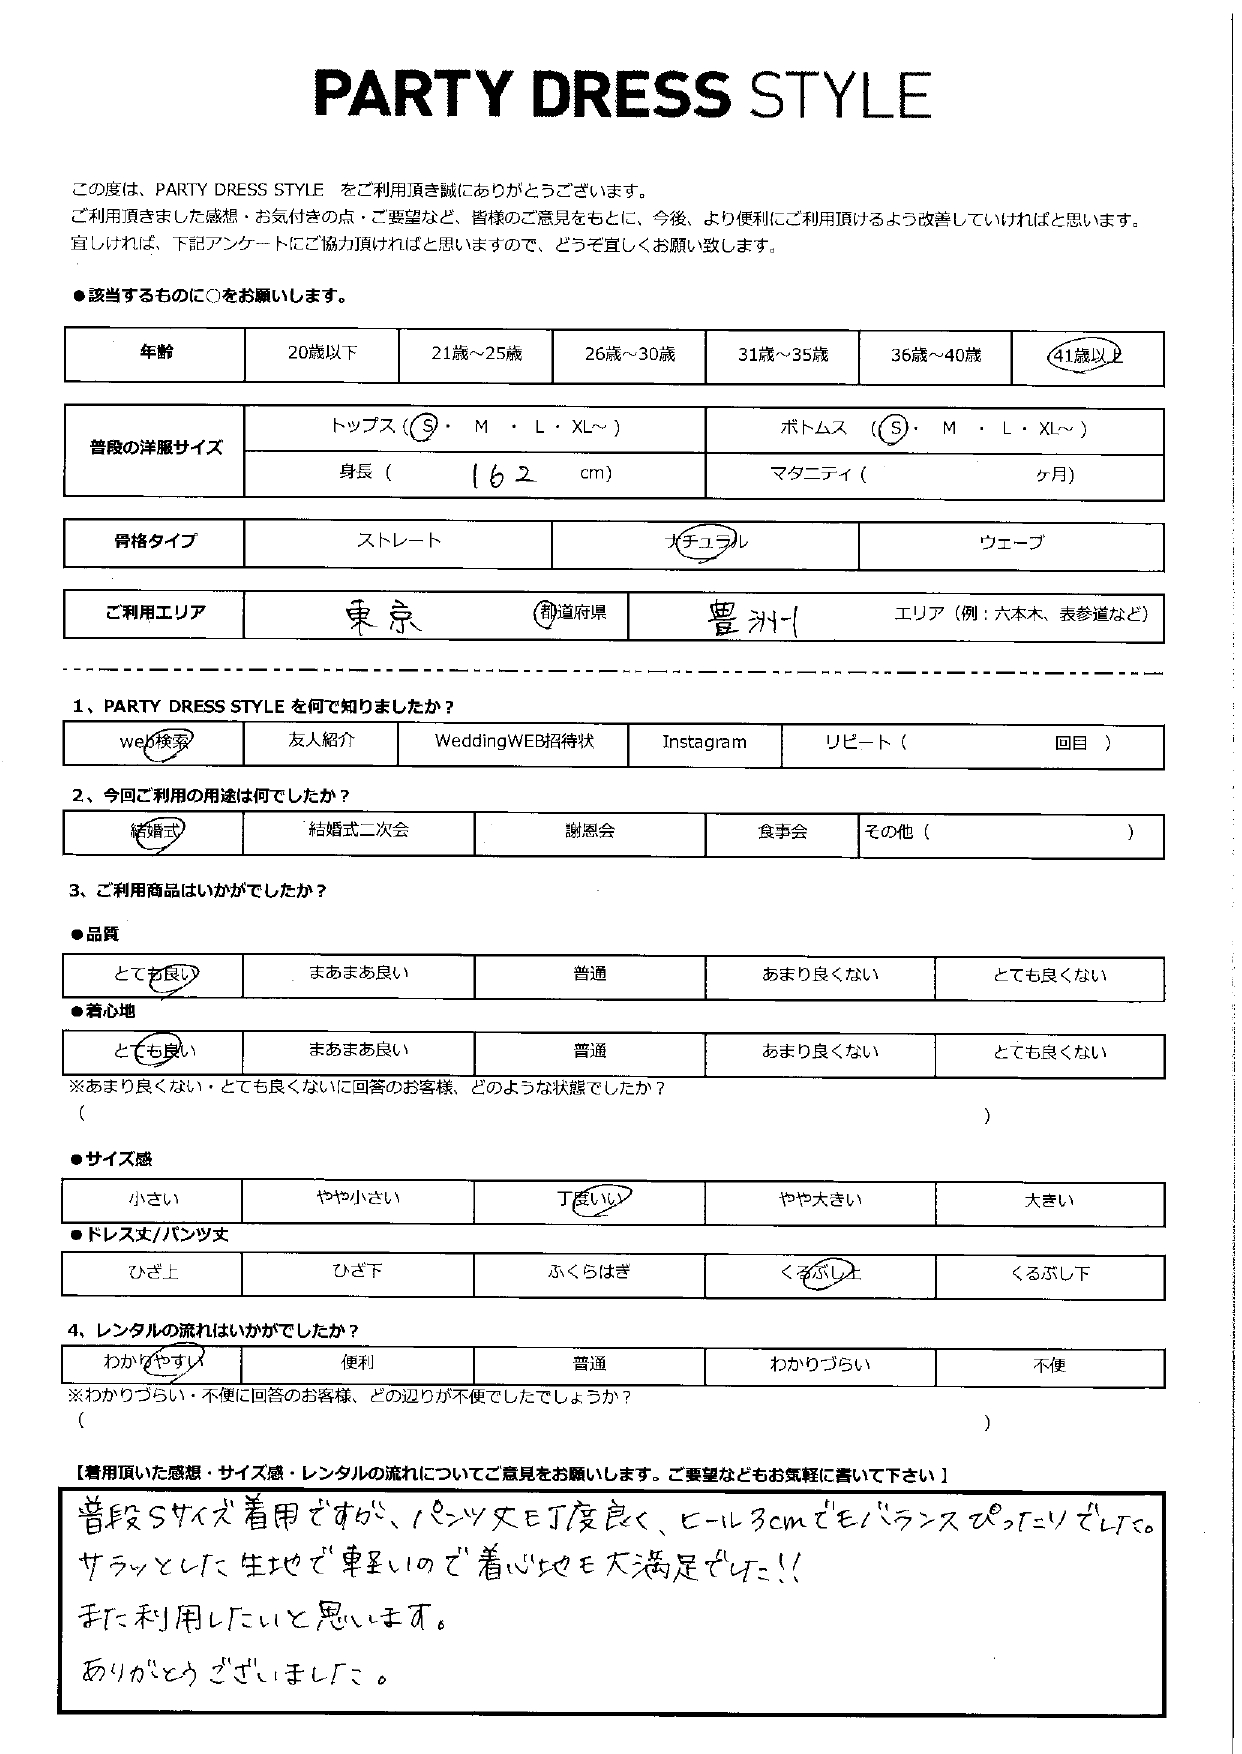 PARTY DRESS STYLE
この度は、PARTY DRESS STYLE をご利用頂き誠にありがとうございます。
ご利用頂きました感想・お気付きの点・ご要望など、皆様のご意見をもとに、今後、より便利にご利用頂けるよう改善していければと思います。
宜しければ、下記アンケートにご協力頂ければと思いますので、どうぞ宜しくお願い致します。
●該当するものに○をお願いします。
年齢 20歳以下 21歳～25歳 26歳～30歳 31歳～35歳 36歳～40歳 41歳以上
普段の洋服サイズ
トップス (S・ M ・ L・XL～ ) ボトムス (S・ M ・ L・XL～ )
身長 ( 162 cm) マタニティ ( ヶ月)
骨格タイプ ストレート ナチュラル ウェーブ
ご利用エリア 東京 都道府県 豊洲 エリア（例：六本木、表参道など）
1、PARTY DRESS STYLE を何で知りましたか？
web検索 友人紹介 WeddingWEB招待状 Instagram リピート ( 回目 )
2、今回ご利用の用途は何でしたか？
結婚式 結婚式二次会 謝恩会 食事会 その他 ( )
3、ご利用商品はいかがでしたか？
●品質
とても良い まあまあ良い 普通 あまり良くない とても良くない
●着心地
とても良い まあまあ良い 普通 あまり良くない とても良くない
※あまり良くない・とても良くないに回答のお客様、どのような状態でしたか？
( )
●サイズ感
小さい やや小さい 丁度いい やや大きい 大きい
●ドレス丈/パンツ丈
ひざ上 ひざ下 ふくらはぎ くるぶし上 くるぶし下
4、レンタルの流れはいかがでしたか？
わかりやすい 便利 普通 わかりづらい 不便
※わかりづらい・不便に回答のお客様、どの辺りが不便でしたでしょうか？
( )
【着用頂いた感想・サイズ感・レンタルの流れについてご意見をお願いします。ご要望などもお気軽に書いて下さい】
普段Sサイズ着用ですが、パンツ丈も丁度良く、ヒール3cmでもバランスぴったりでした。
サラッとした生地で軽いので着心地も大満足でした!!
また利用したいと思います。
ありがとうございました。